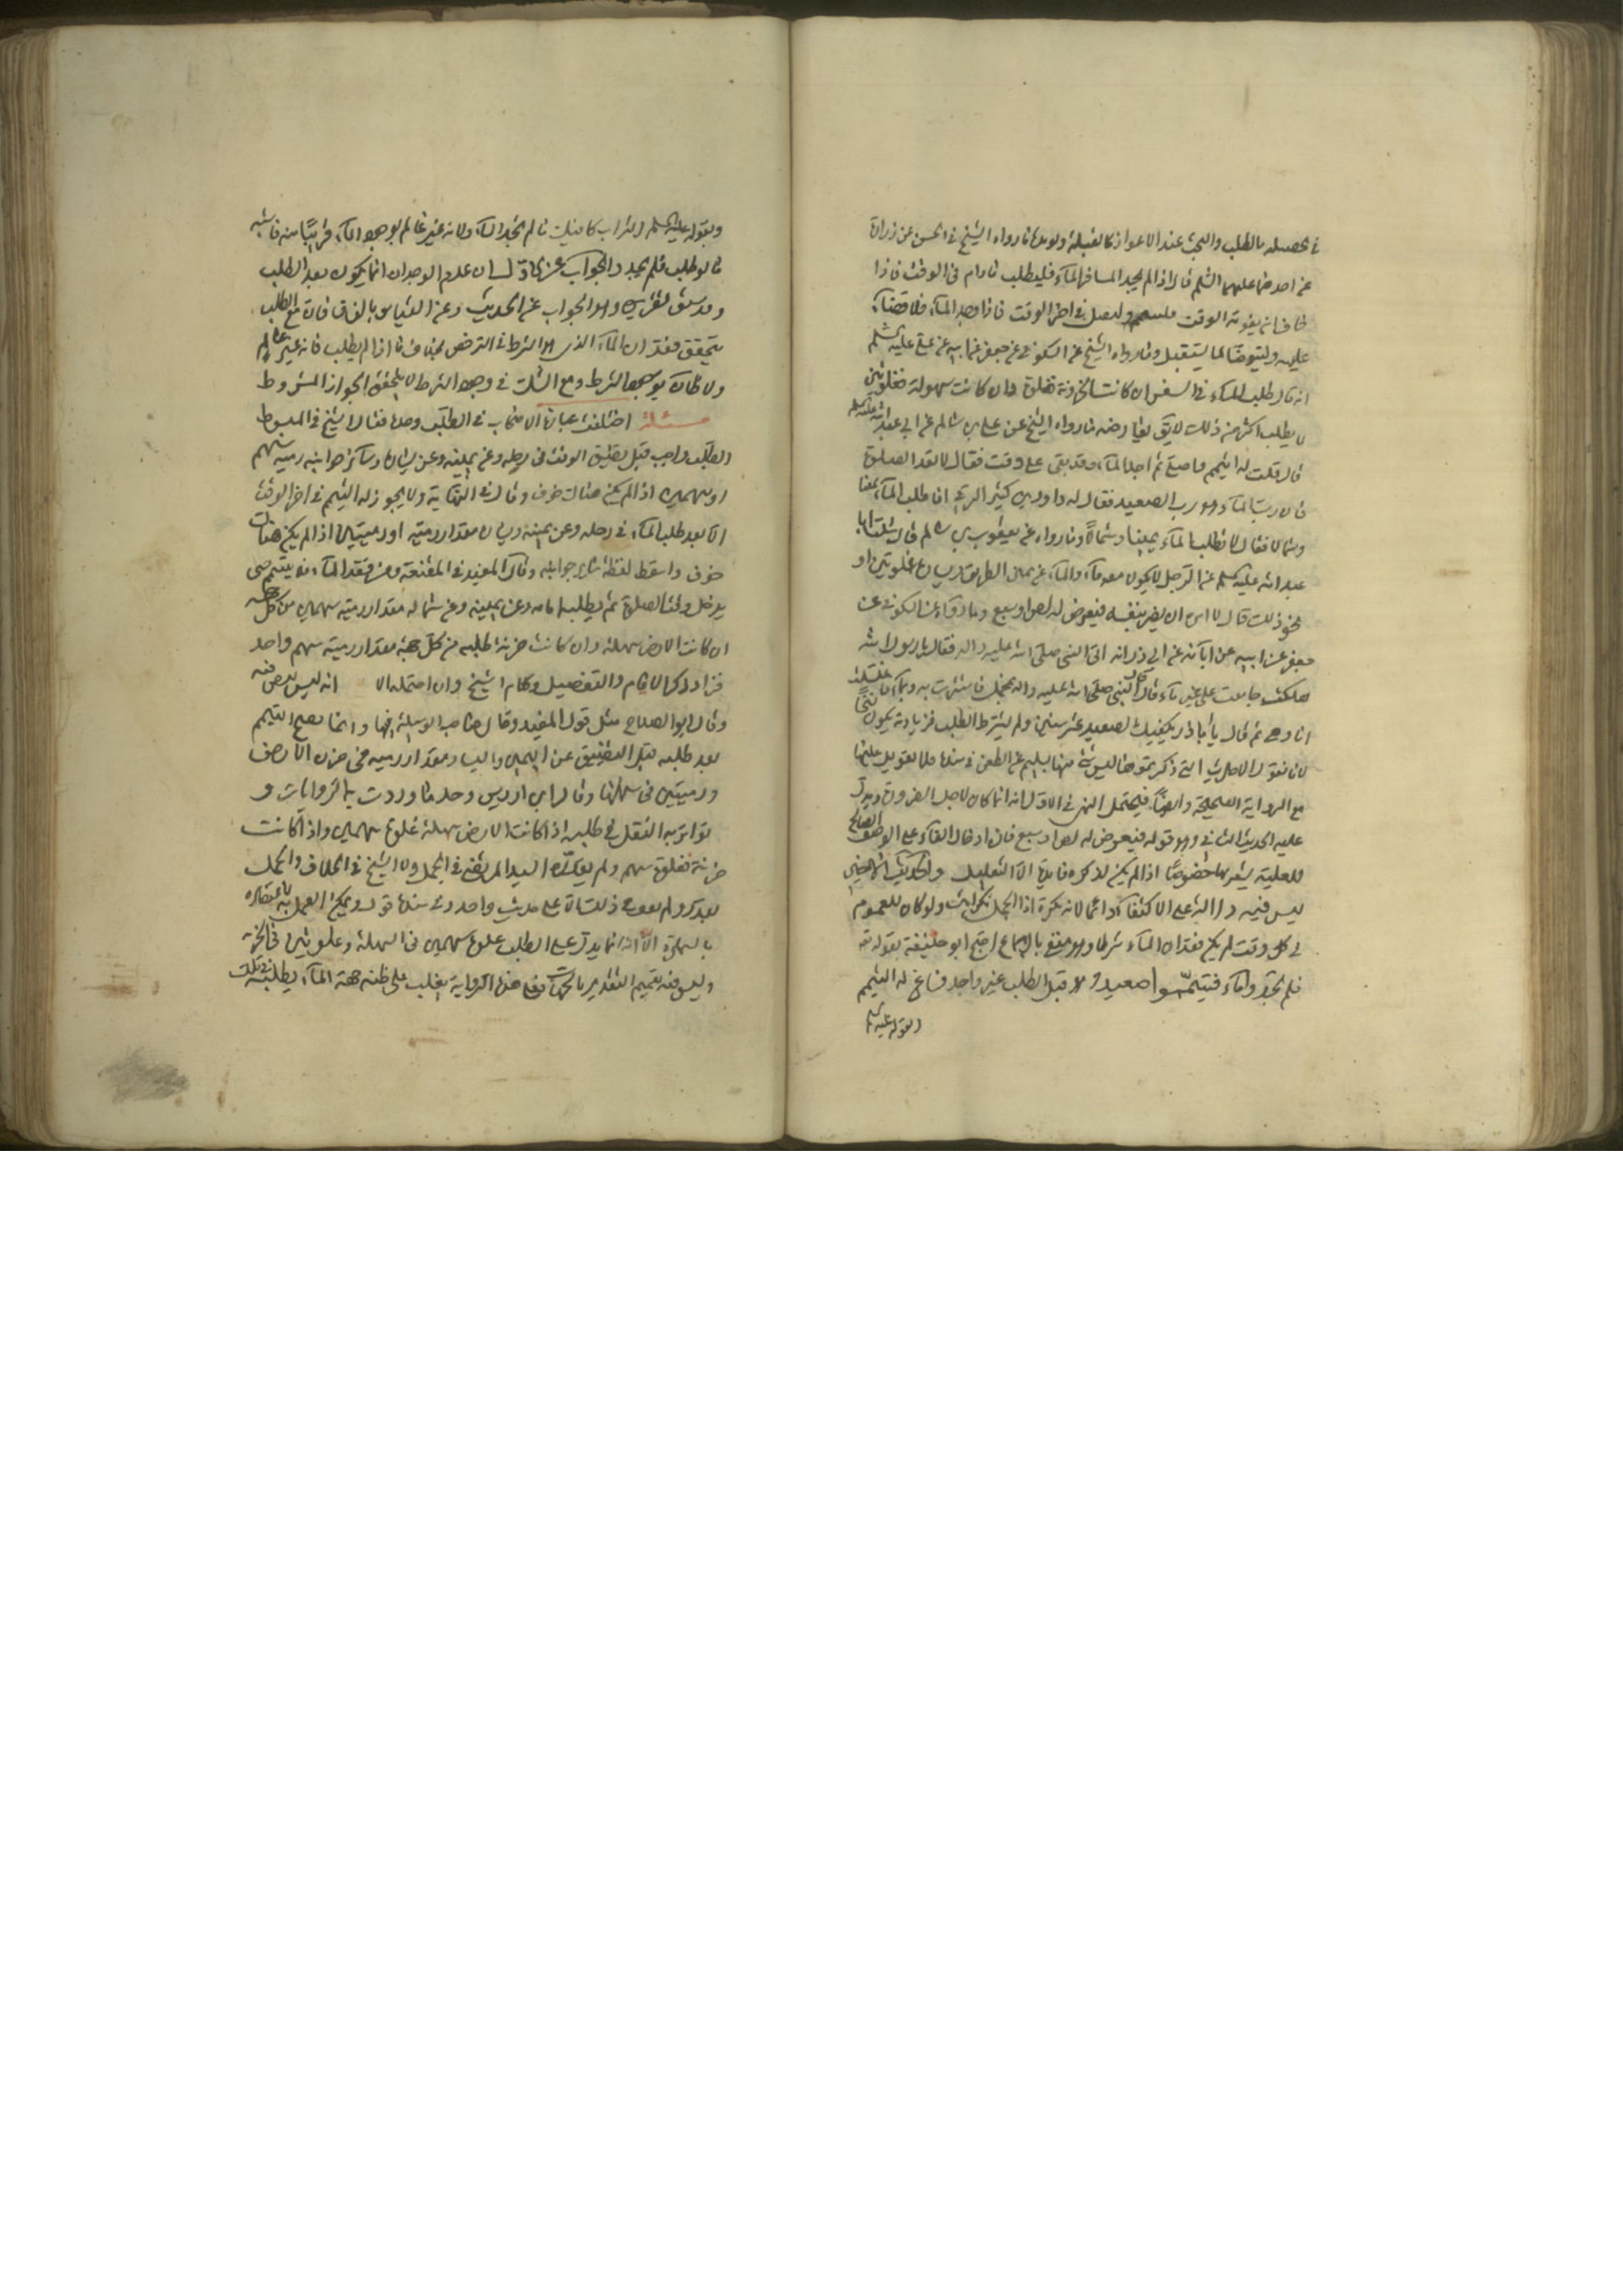 في تحصيله بالطلب والبحث عند الاعواز كالقبلة ولما رواه الشيخ في الحسن عن زرارة
عن احدهما عليهما السلم قال اذا لم يجد المسافر المآء فليطلب مادام في الوقت فاذا
خاف ان يفوته الوقت فليتيمم وليصل في اخر الوقت فاذا وجد المآء فلا قضآء
عليه وليتوضا لما يستقبل وما رواه الشيخ عن السكوني عن جعفر عن ابيه عن علي عليه السلم
انه قال يطلب المآء في السفر ان كانت الحزونة فغلوة وان كانت سهولة فغلوتين
لا يطلب اكثر من ذلك لا يق يعارضه ما رواه الشيخ عن علي بن سالم عن ابي عبد الله عليه السلم
قال قلت له اتيمم واصلي ثم اجد المآء وقد بقي علي وقت فقال لا تعد الصلوة
فان رب المآء هو رب الصعيد فقال له داود بن كثير الرقي افاطلب المآء يمينا
وشمالا فقال لا تطلب المآء يمينا وشمالا وما رواه عن يعقوب بن سالم قال سئلت ابا
عبد الله عليه السلم عن الرجل لا يكون معه مآء والمآء عن يمين الطريق ويساره غلوتين او
نحو ذلك قال لا امره ان يغرر بنفسه فيعرض له لص او سبع وما رواه عن السكوني عن
جعفر عن ابيه عن ابآئه عن ابي ذر انه اتى النبي صلى الله عليه واله فقال يا رسول الله
هلكت جامعت على غير مآء قال فامر النبي صلى الله عليه واله بمحمل فاستترت به وبمآء فاغتسلت
انا وهي ثم قال يا ابا ذر يكفيك الصعيد عشر سنين ولم يشترط الطلب فزيادته يكون نسخا
لانا نقول الاحاديث التي ذكرتموها ليس شئ منها بسليم عن الطعن في سندها فلا تعويل عليها
مع الرواية الصحيحة وايضا فيحتمل النهي في الاول انه انما كان لاجل الخوف ويدل
عليه الحديث الثاني وهو قوله فيعرض له لص او سبع فان ادخال الفآء على الوصف الصالح
للعلية يشعر بها خصوصا اذا لم يكن لذكره فايدة الا التعليل والحديث الاخير
ليس فيه دلالة على الاكتفآء دائما لانه نكرة اذا الجمل نكرات ولو كان للعموم
في كل وقت لم يكن فقدان المآء شرطا وهو منفي بالاجماع احتج ابو حنيفة بقوله تعه
فلم تجدوا مآء فتيمموا صعيدا وهو قبل الطلب غير واجد فساغ له التيمم
وبقوله عليه السلم
وبقوله عليه السلم التراب كافيك ما لم تجد المآء ولانه غير عالم بوجود المآء قريبا منه فاشبه
ما لو طلب فلم يجد والجواب عن الاول لسان عدم الوجدان انما يكون بعد الطلب
وقد سبق تقريره وهو الجواب عن الحديث وعن القياس بالفرق فان مع الطلب
يتحقق فقدان المآء الذي هو الشرط في الترخص بخلاف ما اذا لم يطلب فانه غير عالم
ولا ظان بوجود الشرط ومع الشك في وجود الشرط لا يتحقق الجواز المشروط
مسئلة اختلفت عبارة الاصحاب في الطلب وحده فقال الشيخ في المبسوط
الطلب واجب قبل تضيق الوقت في رحله وعن يمينه وعن يساره وسائر جوانبه رمية سهم
او سهمين اذا لم يكن هناك خوف وقال في النهاية ولا يجوز له التيمم في اخر الوقت
الا بعد طلب المآء في رحله وعن يمينه ويساره مقدار رمية او رميتين اذا لم يكن هناك
خوف واسقط لفظة سائر جوانبه وقال المفيد في المقنعة ومن فقد المآء فلا يتيمم حتى
يدخل وقت الصلوة ثم يطلبه امامه وعن يمينه وعن شماله مقدار رمية سهمين من كل جهة
ان كانت الارض سهلة وان كانت حزنة طلبه من كل جهة مقدار رمية سهم واحد
فزاد ذكر الامام والتفصيل وكلام الشيخ وان احتمله الا انه ليس بصريح فيه
وقال ابو الصلاح مثل قول المفيد وقال صاحب الوسيلة فيها وانما يصح التيمم
بعد طلبه قبل التضييق عن اليمين واليسار مقدار رمية في حزن الارض
ورميتين في سهلها وقال ابن ادريس وحد ما وردت به الروايات و
تواتر به النقل في طلبه اذا كانت الارض سهلة غلوة سهمين واذا كانت
حزنة فغلوة سهم ولم يقدره السيد المرتضى في الجمل ولا الشيخ في الخلاف والجمل
بقدر ولم نقف في ذلك الا على حديث واحد وفي سنده قول ويمكن العمل به لاعتضاده
بالشهرة الا انه انما يدل على الطلب غلوة سهمين في السهلة وغلوة في الحزنة
وليس فيه تعميم التقدير بالجهات فعلى هذه الرواية يغلب على ظنه جهة المآء يطلبه في تلك